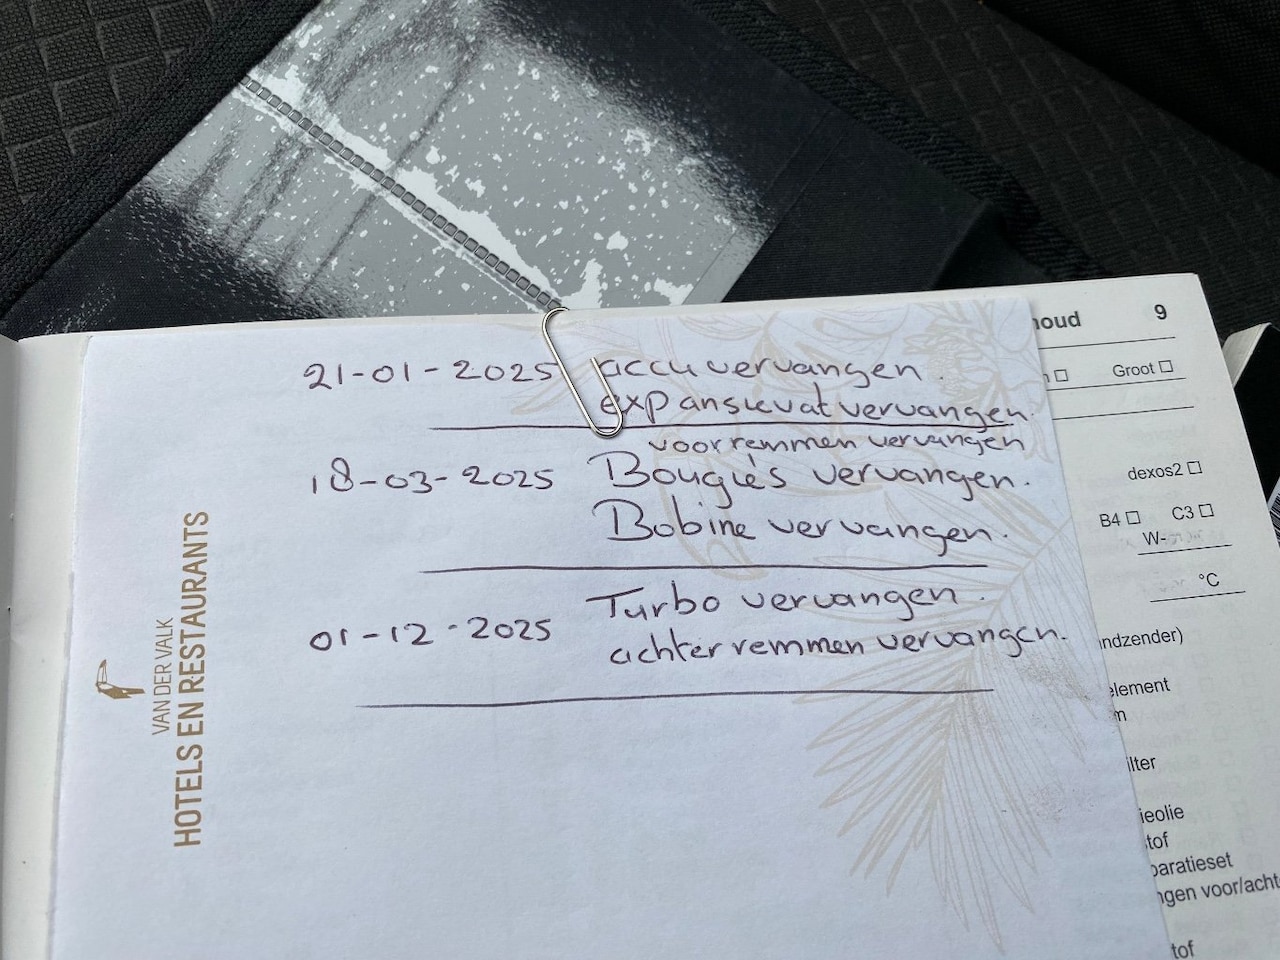 21-01-2025 accu vervangen.
expansievat vervangen.
voorremmen vervangen
18-03-2025 Bougie's vervangen.
Bobine vervangen.
Turbo vervangen.
01-12-2025 achterremmen vervangen.
VAN DER VALK
HOTELS EN RESTAURANTS
houd 9
Groot
dexos2
B4 C3
W-
°C
ndzender)
element
m
ilter
ieolie
tof
paratieset
ngen voor/acht
tof